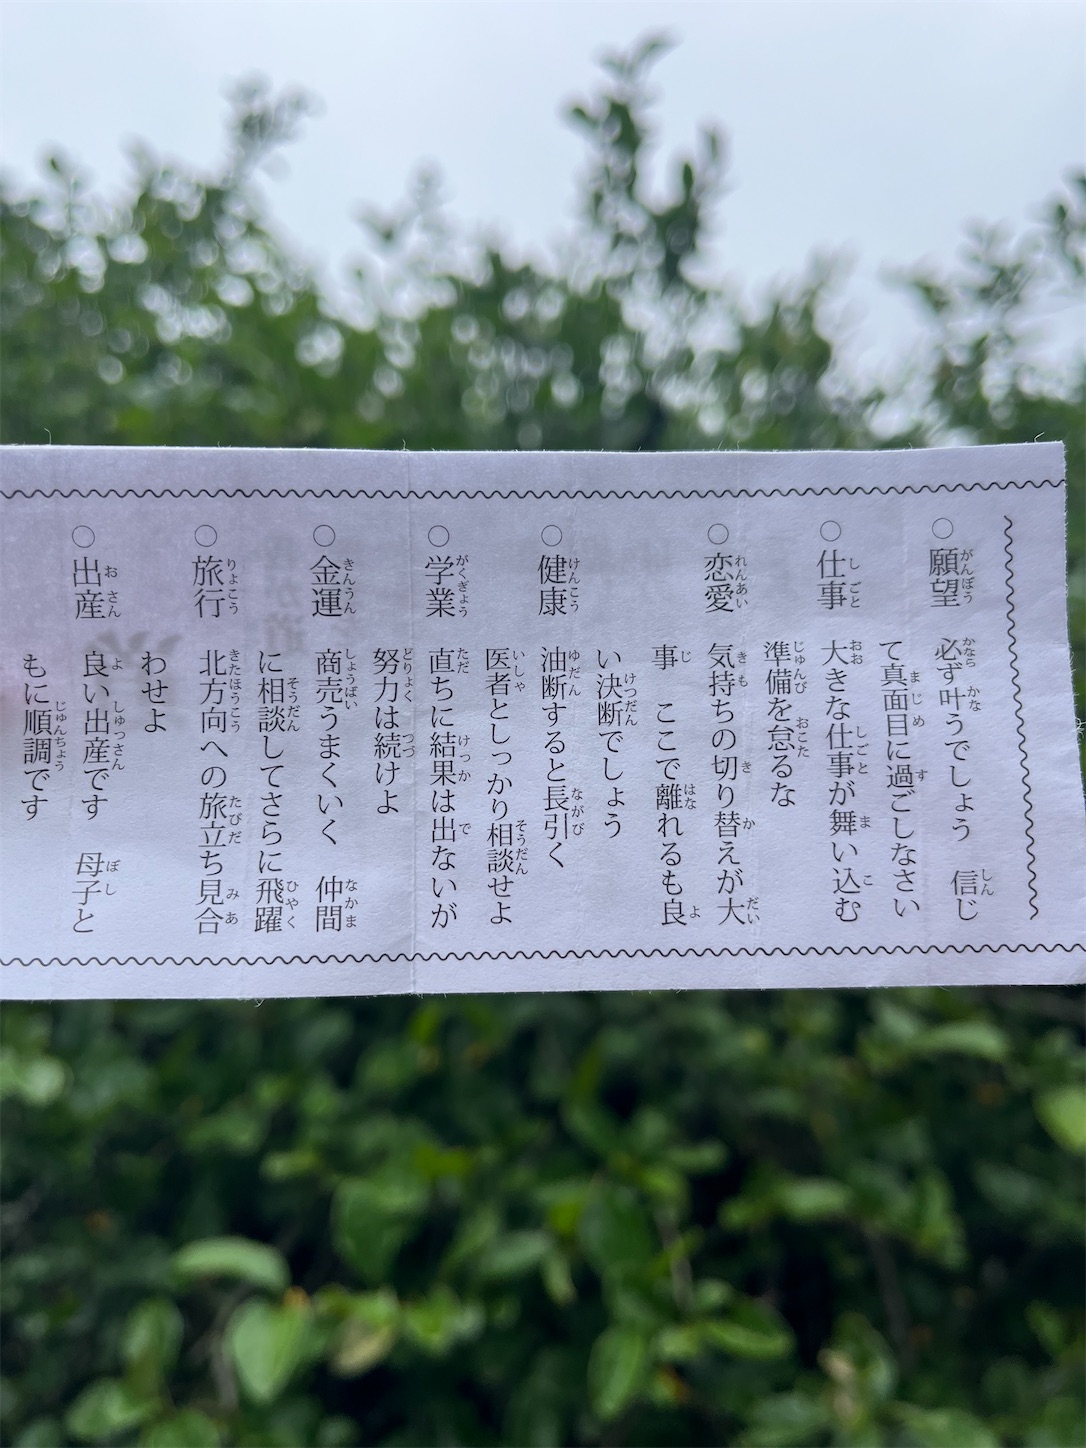 ○願望 必ず叶うでしょう 信じ
て真面目に過ごしなさい
○仕事 大きな仕事が舞い込む
準備を怠るな
○恋愛 気持ちの切り替えが大
事 ここで離れるも良
い決断でしょう
○健康 油断すると長引く
医者としっかり相談せよ
○学業 直ちに結果は出ないが
努力は続けよ
○金運 商売うまくいく 仲間
に相談してさらに飛躍
○旅行 北方向への旅立ち見合
わせよ
○出産 良い出産です 母子と
もに順調です